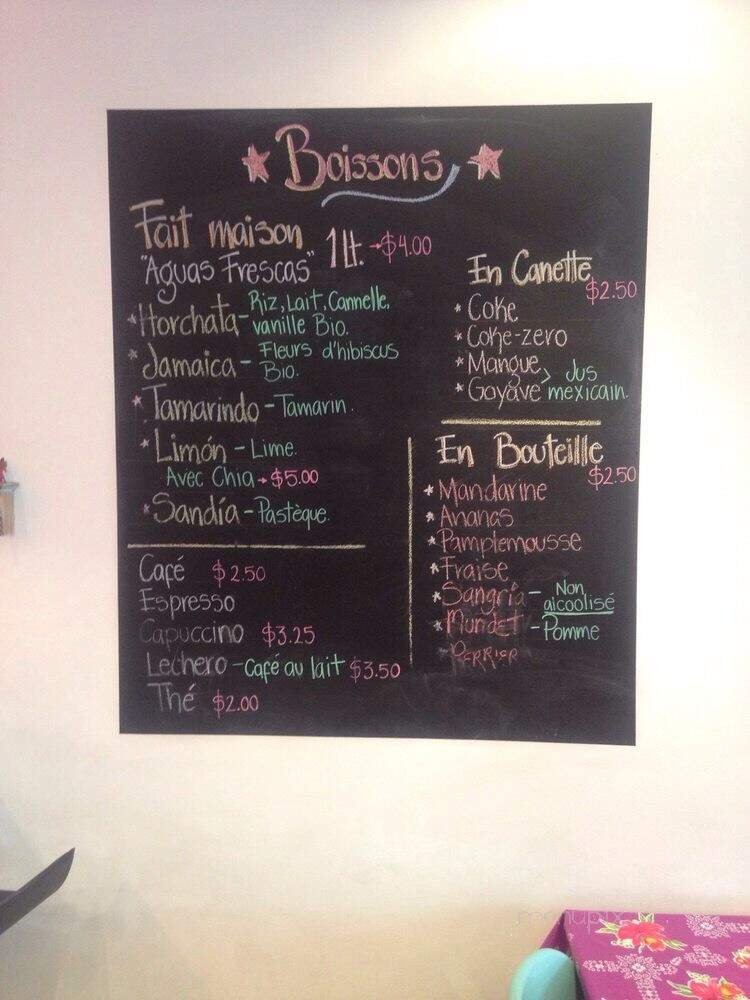 Boissons
Fait maison
"Aguas Frescas" 1 Lt. $4.00
Horchata - Riz, Lait, Cannelle,
vanille Bio.
Jamaica - Fleurs d'hibiscus
Bio.
Tamarindo - Tamarin.
Limón - Lime.
Avec Chia $5.00
Sandía - Pastèque.
Café $2.50
Espresso
Capuccino $3.25
Lechero - café au lait $3.50
Thé $2.00
En Canette
$2.50
Coke
Coke-zero
Mangue
Goyave > Jus
mexicain.
En Bouteille
$2.50
Mandarine
Ananas
Pamplemousse
Fraise
Sangria - Non
alcoolisé
Mundet - Pomme
Perrier